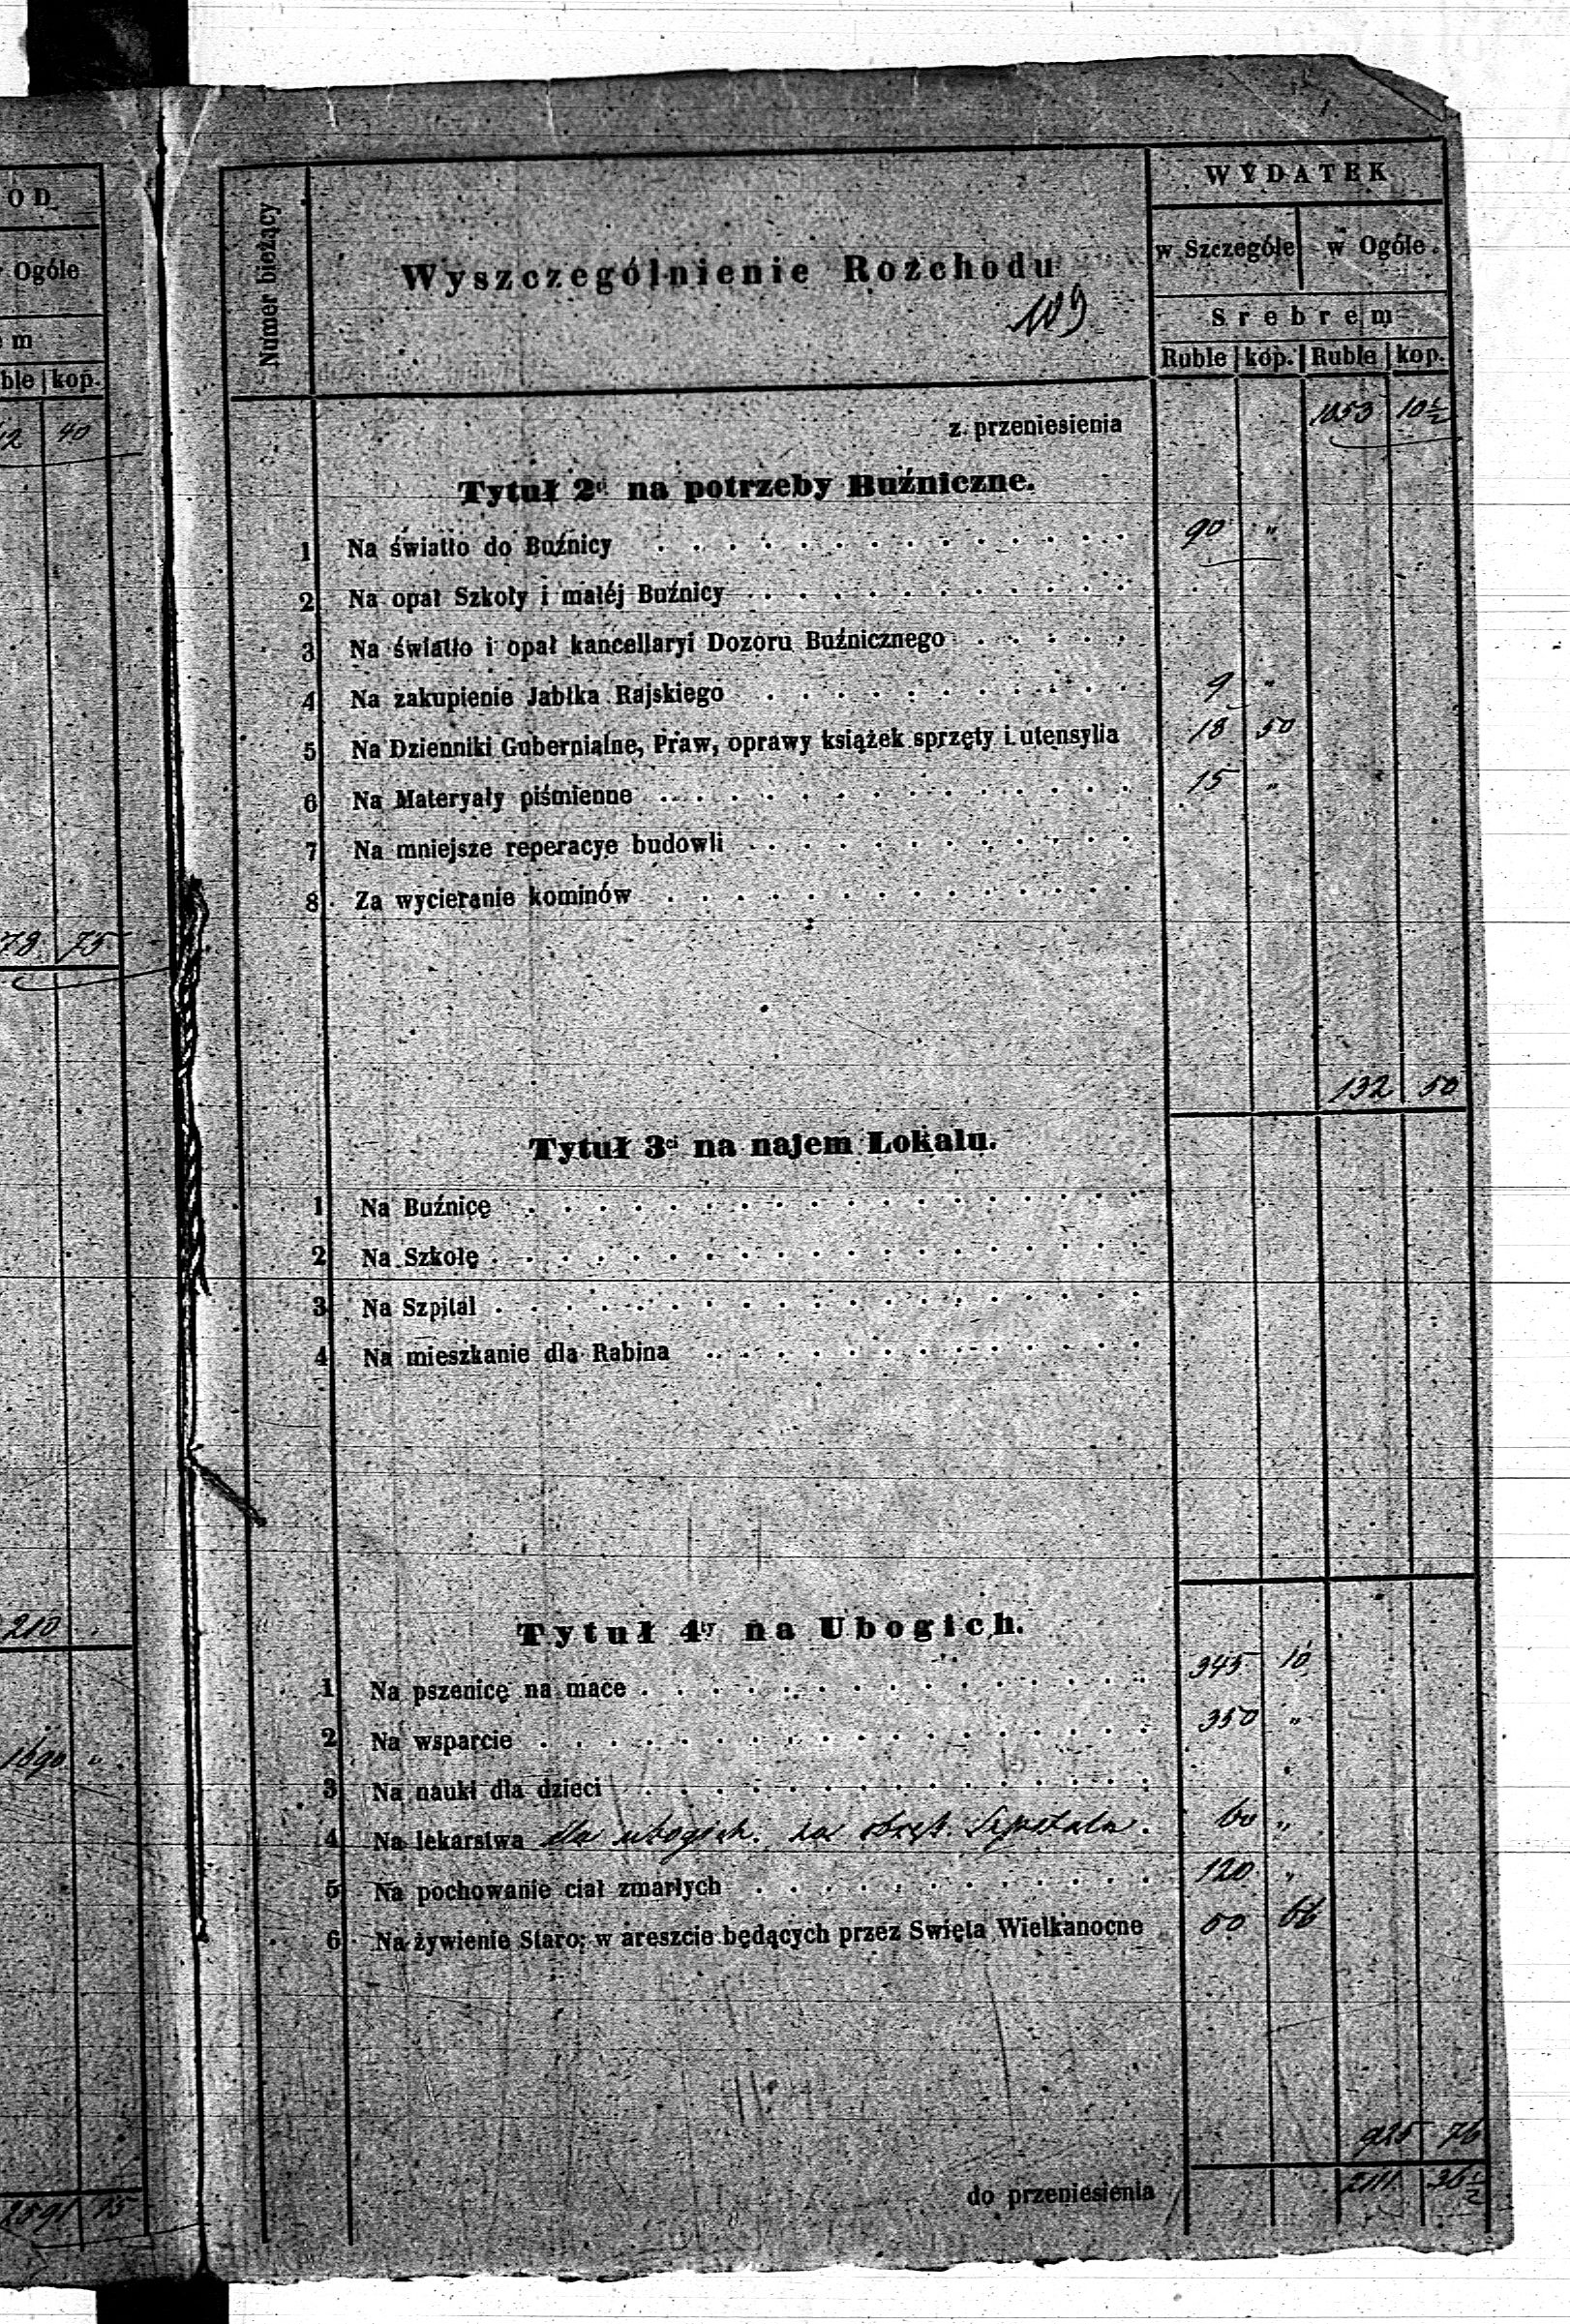 OD
Ogóle
m
ble kop.
12 40
78 75
210
1690 "
2591 15
Numer bieżący
Wyszczególnienie Rozchodu
109
WYDATEK
w Szczególe w Ogóle
Srebrem
Ruble kop. Ruble kop.
z przeniesienia 1053 10½
Tytuł 2gi na potrzeby Buźniczne.
1 Na światło do Buźnicy . . . . . . . . . . . . . . 90 "
2 Na opał Szkoły i małéj Buźnicy . . . . . . . . . . .
3 Na światło i opał kancellaryi Dozoru Buźnicznego . . . . .
4 Na zakupienie Jabłka Rajskiego . . . . . . . . . . . 9 "
5 Na Dzienniki Gubernialne, Praw, oprawy książek sprzęty i utensylia 18 50
6 Na Materyały piśmienne . . . . . . . . . . . . . . 15 "
7 Na mniejsze reperacye budowli . . . . . . . . . . .
8 Za wycieranie kominów . . . . . . . . . . . . . .
132 50
Tytuł 3ci na najem Lokalu.
1 Na Buźnicę . . . . . . . . . . . . . . . . . .
2 Na Szkołę . . . . . . . . . . . . . . . . . . .
3 Na Szpital . . . . . . . . . . . . . . . . . . .
4 Na mieszkanie dla Rabina . . . . . . . . . . . . .
Tytuł 4ty na Ubogich.
1 Na pszenicę na mace . . . . . . . . . . . . . . 345 10
2 Na wsparcie . . . . . . . . . . . . . . . . . 350 "
3 Na nauki dla dzieci . . . . . . . . . . . . . .
4 Na lekarstwa dla ubogich. Szpitala. 60 "
5 Na pochowanie ciał zmarłych . . . . . . . . . . . 120 "
6 Na żywienie Staro: w areszcie będących przez Swięta Wielkanocne 50 66
925 76
do przeniesienia 2111 36½